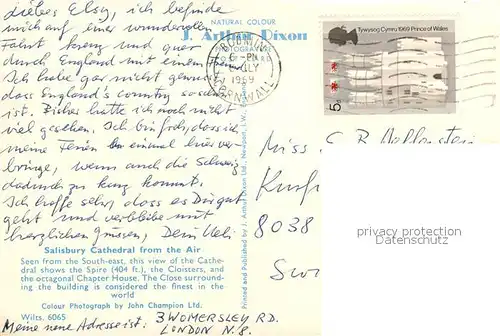 Liebes Elsy, ich befinde
mich auf einer wundervollen
Fahrt kreuz und quer
durch England mit einem
Ich habe gar nicht gewusst
dass England's country so schön
ist. Bisher hatte ich noch nicht
viel gesehen. Ich bin froh, dass ich
meine Ferien einmal hier ver-
bringe, wenn auch die Schweiz
dadurch zu kurz kommt.
Ich hoffe sehr, dass es Dir gut
geht und verbleibe mit
herzlichen Grüssen, Dein Ueli
NATURAL COLOUR
J. Arthur Dixon
PHOTOGRAVURE
6-PM
1969
CORNWALL
Tywysog Cymru 1969 Prince of Wales
5d
Printed and Published by J. Arthur Dixon Ltd., Newport, I.W., England
Miss
8038
protected by copyright
Salisbury Cathedral from the Air
Seen from the South-east, this view of the Cathe-
dral shows the Spire (404 ft.), the Cloisters, and
the octagonal Chapter House. The Close surround-
ing the building is considered the finest in the
world
Colour Photograph by John Champion Ltd.
Wilts. 6065
Meine neue Adresse ist: 3 WOMERSLEY RD.
LONDON N.8.